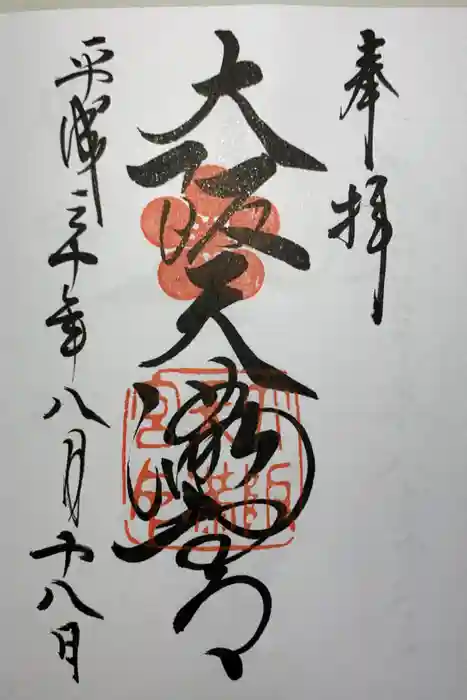 奉拝
大阪天満宮
平成三十年八月十八日